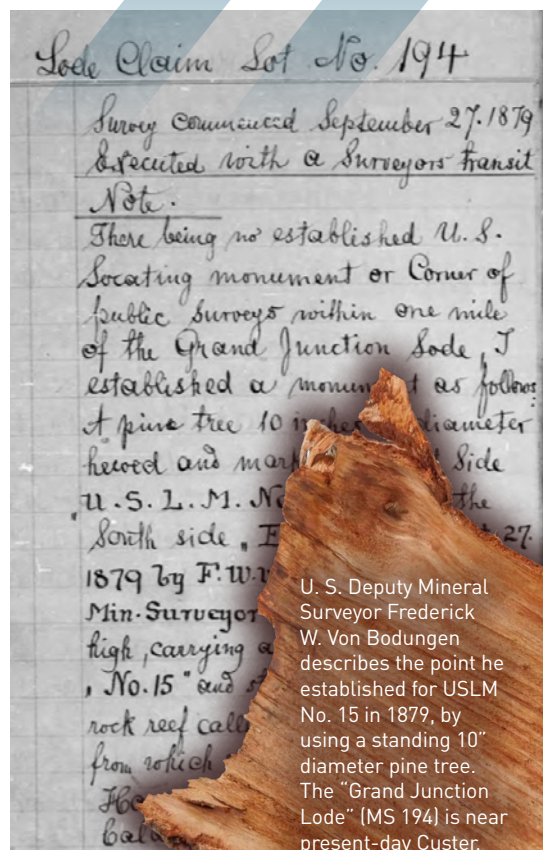 Lode Claim Lot No. 194
Survey commenced September 27. 1879
Executed with a Surveyors transit
Note.
There being no established U. S.
Locating monument or Corner of
public Surveys within one mile
of the Grand Junction Lode, I
established a monum t as follows:
A pine tree 10 inches diameter
hewed and mark Side
U. S. L. M. No the
South side, E 27.
1879 by F. W. V
Min. Surveyor
high, carrying a
"No. 15" and s
rock reef call
from which
U. S. Deputy Mineral
Surveyor Frederick
W. Von Bodungen
describes the point he
established for USLM
No. 15 in 1879, by
using a standing 10”
diameter pine tree.
The “Grand Junction
Lode” (MS 194) is near
present-day Custer.